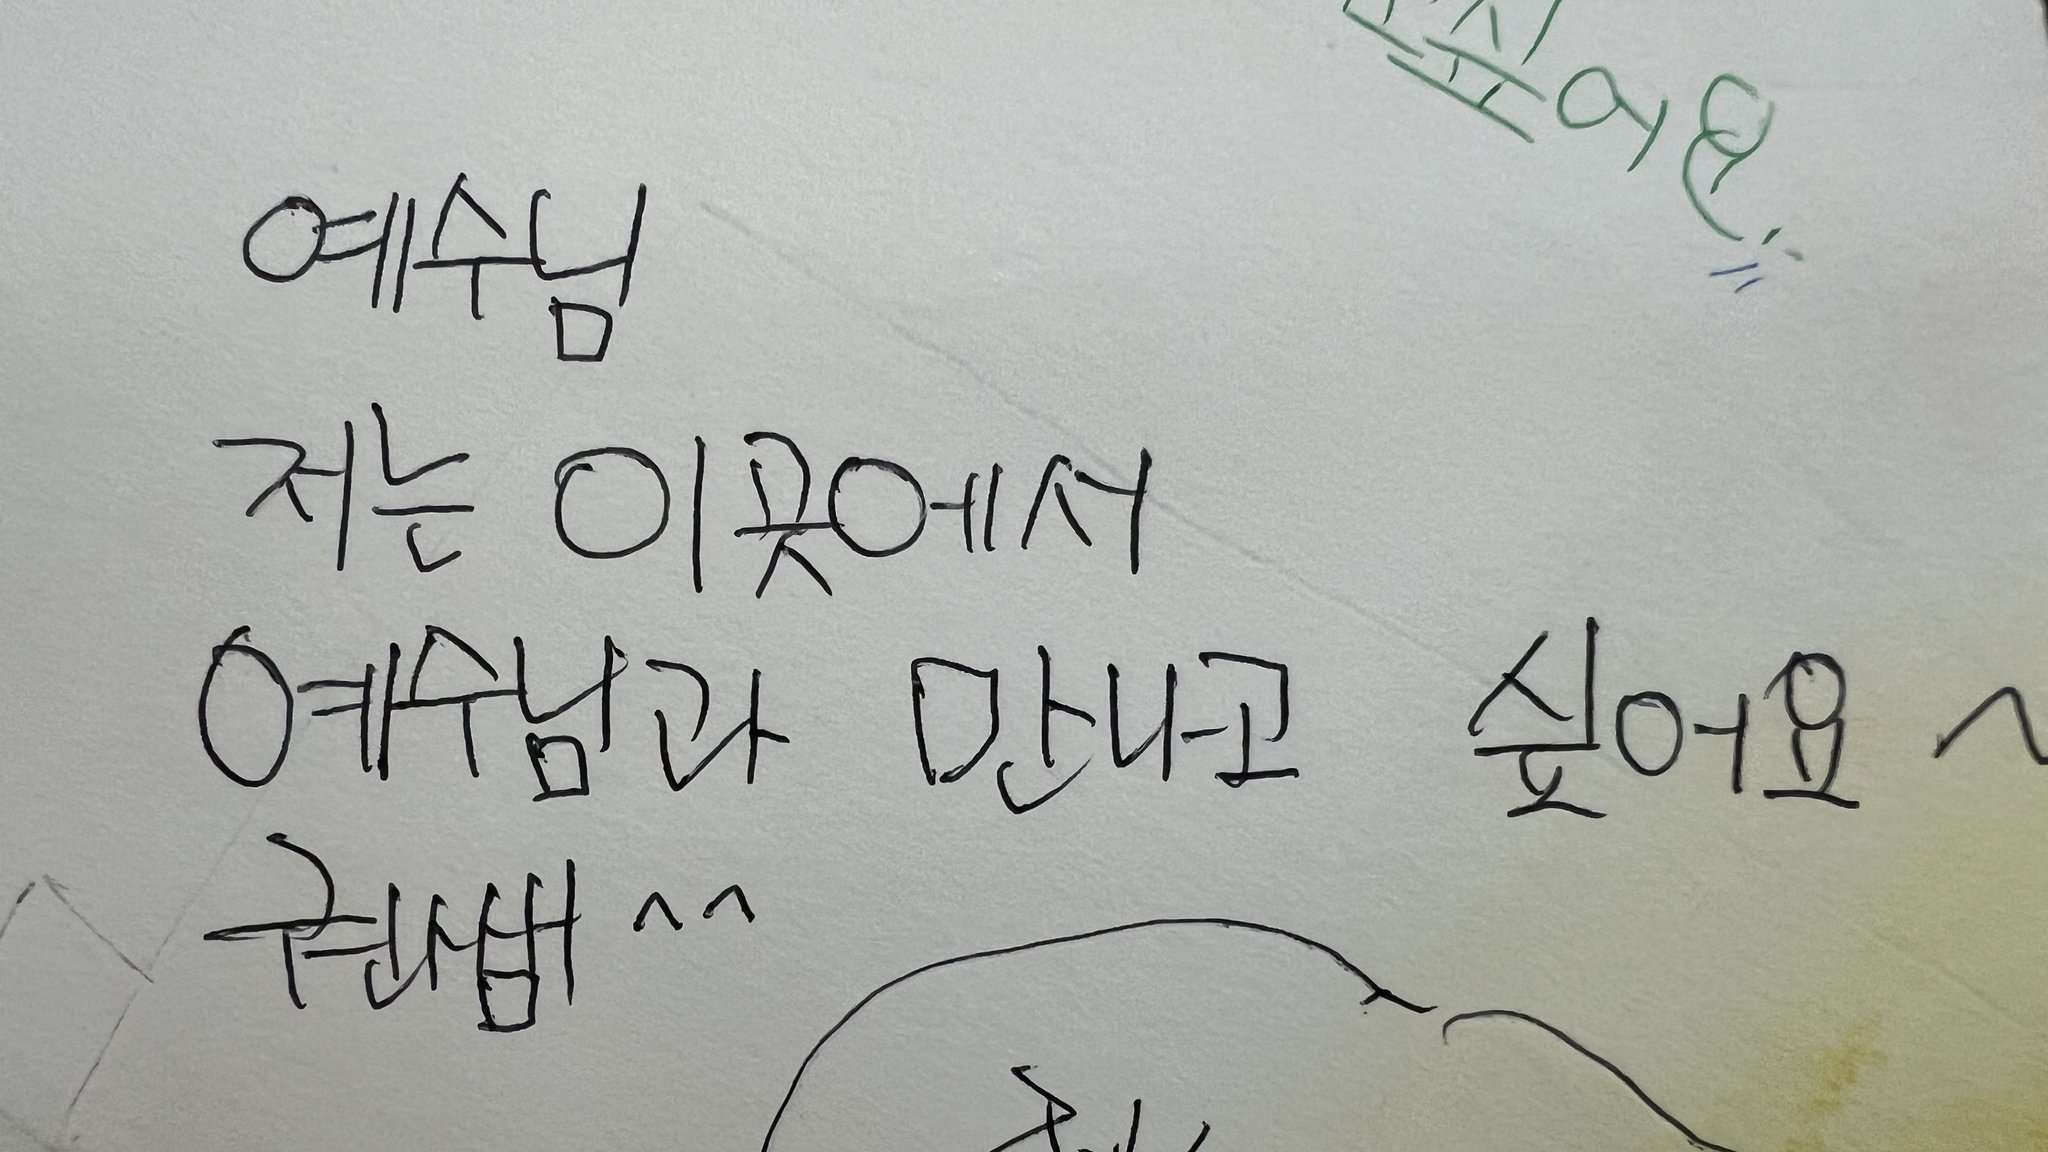 싶어요
예수님
저는 이곳에서
예수님과 만나고 싶어요 ~
권한범 ^^